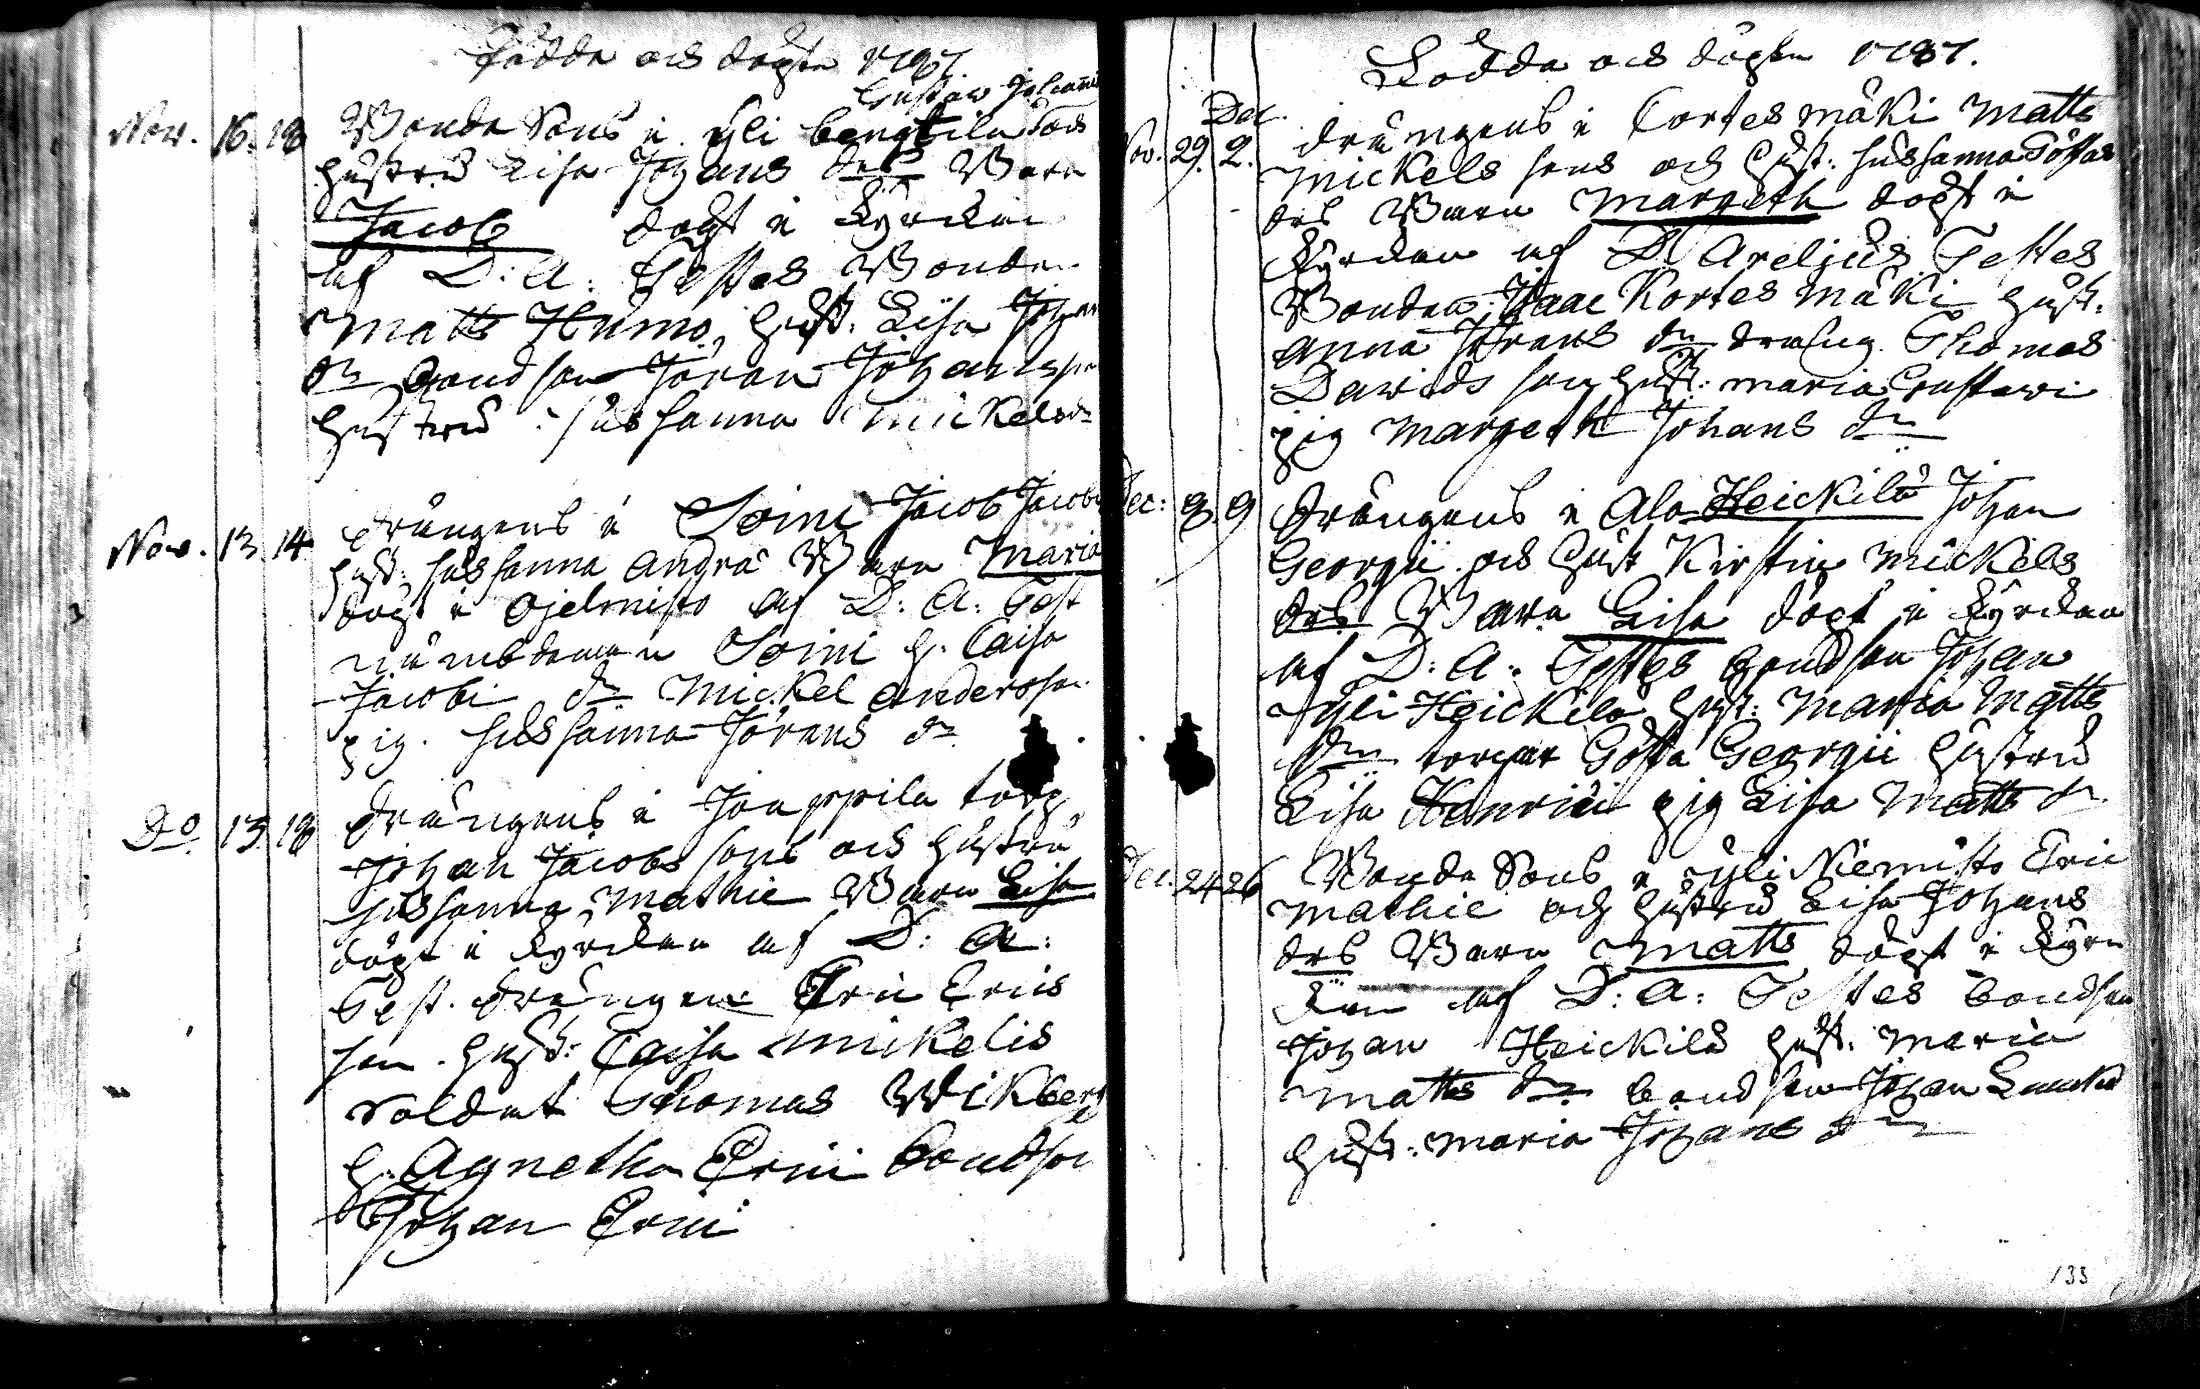 Födde och döpte 1787
Gustaw Johanni
Nov. 16. 18 Bonde Sons i yli bengtila och
hustru Lisa Johans drs Barn
Jacob döpt i Kyrckan
af D: A: Testes Bonden
Matts Humo, hust. Lisa Johans
dr bondson Jöran Johansson
hustru: sussanna Mickels dr
Nov. 13. 14 drängens i Soini Jacob Jacobi
hust: sussanna Andrä Barn Maria
döpt i Ojelmisto af D: A: Test
nämbdeman Soini h. Caisa
Jacobi dr Mickel Andersson
pig. sussanna Jörans dr
Do 13. 18 drängens i Jouppila torp
Johan Jacobs sons och hustru
sussanna Mathie Barn Lisa
döpt i Kyrckan af D: A:
Test. drängen Eric Erics
son. hust: Caisa Mickelis
soldat Thomas Wikberg
h. Agnetha Erici bondson
Johan Erici
Födde och döpte 1787.
Dec.
Nov. 29. 2. drängens i Cortesmäki Matts
Mickels sons och hust: sussanna Göstas
drs Barn Margeth döpt i
Kyrckan af D Arelius Testes
Bonden Isaac Kortesmäki hust.
Anna Jörans dr dräng. Thomas
Dawidsson hust: maria Gustawi
pig Margeth Johans dr
Dec: 8. 9 drängens i Ala Heickilä Johan
Georgii och hust Kirstin Mickels
drs Barn Lisa döpt i Kyrckan
af D: A: Testes bondson Johan
Yli Heickilä hust: Maria Matts
dr torpar Gösta Georgii hustru
Lisa Henrici pig Lisa Matts dr
Dec. 24 26 Bonde Sons i yli Niemistö Eric
Mathie och hustru Lisa Johans
drs Barn Matts döpt i Kyrc
kan af D: A: Testes bondson
Johan Heickilä hust. Maria
Matts dr bondson Johan
hust: Maria Johans dr
133